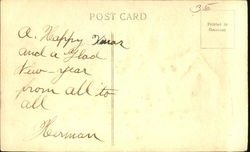 POST CARD
35
Printed in
A. Happy Xmas
and a Glad
New-year
from all to
all
Herman